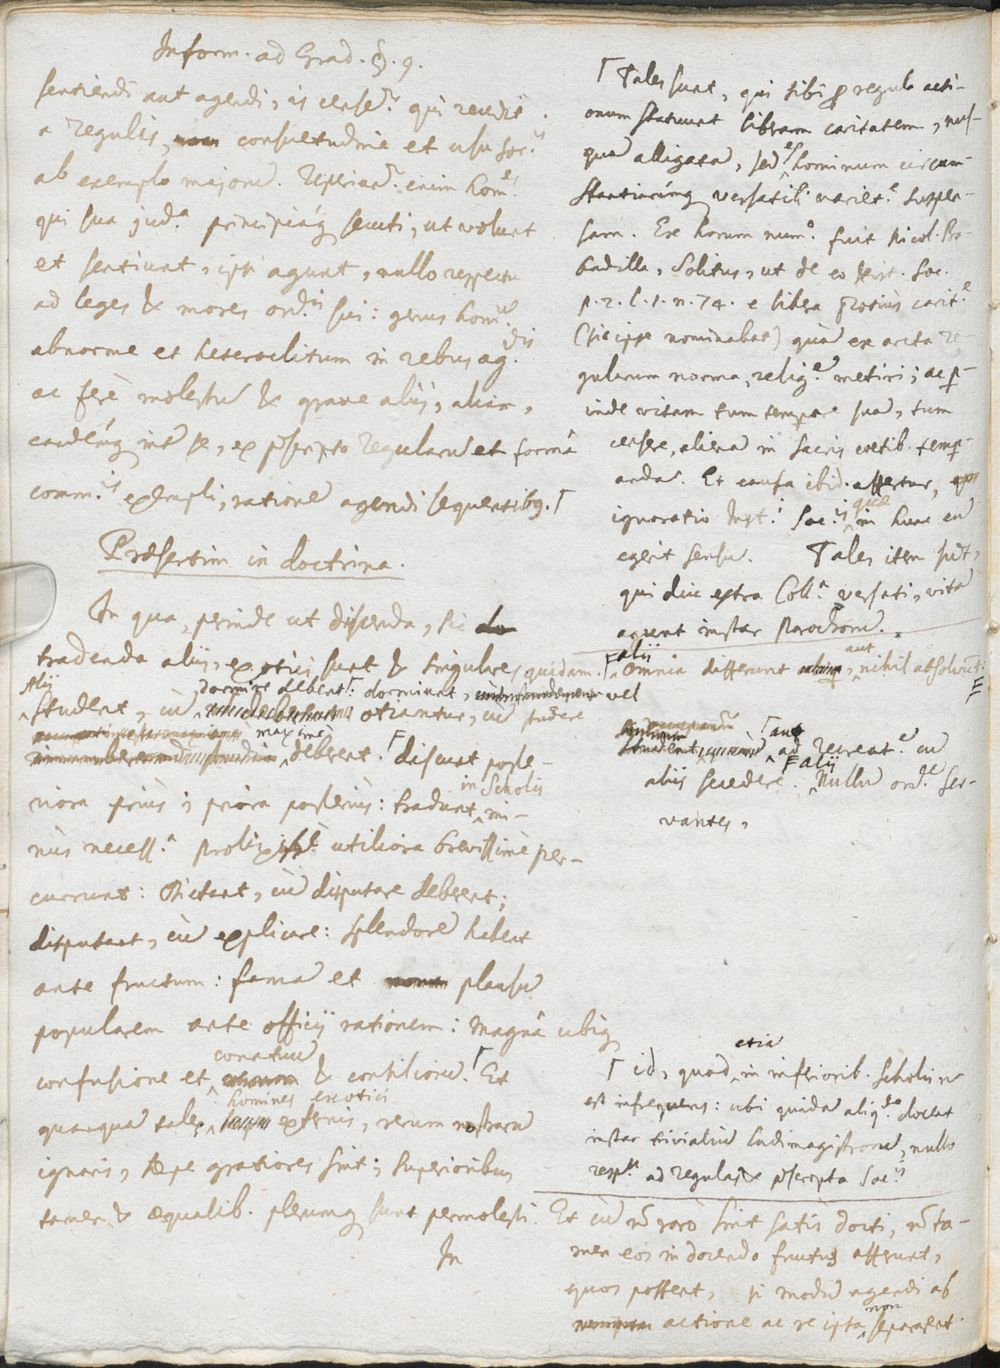 Inform. ad Grad. §. 9.
sentiendi aut agendi, is censet.r qui recedit
a regulis, consuetudine et usu Soc.is
ab exemplo majorū. Reperiunt.r enim hom.es
qui sua jud.a principiaq́ secuti, ut volunt
et sentiunt, ipsi agunt, nullo respectu
ad leges & mores ord.is sui: genus hom.ū
abnorme et heteroclitum in rebus ag.dis
ac ferè molestū & grave aliis, aliam,
eandēq́ int.r se, ex p̄scripto regularū et formâ
comm.is exempli, rationē agendi sequentibq. ꓩ
Præsertim in doctrina.
In qua, perinde ut discenda, sic
tradenda aliis, exotici sunt & singulares quidam. ꓩ
Alij
dormire deberēt. dormiunt,
student, cū otiantur, cū studere
maxime
deberent. discunt poste-
in Scholis
riora priùs; priora posteriùs: tradunt mi-
nùs necess.a prolixiss.e utiliora brevissimè per-
currunt: dictant, cū disputare deberent;
disputant, cū explicare: splendorē habent
ante fructum: famā et plausū
popularem ante officij rationem: magnâ ubiq
conatuū
confusione et & consiliorū. ꓩ Et
homines exotici
quanquā tales externis, rerum nostrarū
ignaris, sæpe gratiores sint; superioribus
tamen & æqualib. plerumq sunt permolesti.
In
ꓩ Tales sunt, qui sibi p regula acti-
onum statuunt liberam caritatem, nus-
quā alligatā, sed ex hominum circum-
stantiarumq́ versatili variet.e suspen-
sam. Ex horum num.o fuit Nicol. Bo-
badilla, solitus, ut de eo Hist. Soc.
p. 2. l. 1. n. 74. e libera potiùs carit.e
(sic ipse nominabat) quā ex arcta re-
gularum norma, relig.ē metiri; ac p-
inde vitam tum tempore suā, tum
censere, alienā in sacris coetib. temp-
andā. Et causa ibid. affertur,
quæ
ignoratio Inst.i Soc.is in hunc eū
egerit sensū. Tales item sūt,
qui diu extra Coll.a versati, vitā
agunt instar Parochorū.
alii aut
Omnia differunt nihil absolvūt:
vel
aut
ad recreat.ē cū
alii
aliis secedere. Nullū ord.ē ser-
vantes,
ꓩ id, quod etiā in inferiorib. Scholis n̄
est infrequens: ubi quidā aliq.do docent
instar trivialiū ludimagistrorū, nullo
resp.tu ad regulas & p̄scripta Soc.is
Et cū n̄ rarò sint satis docti, n̄ ta-
men eos in docendo fructus afferunt,
quos possent, si modū agendi ab
non
actione ac re ipsa separarent.